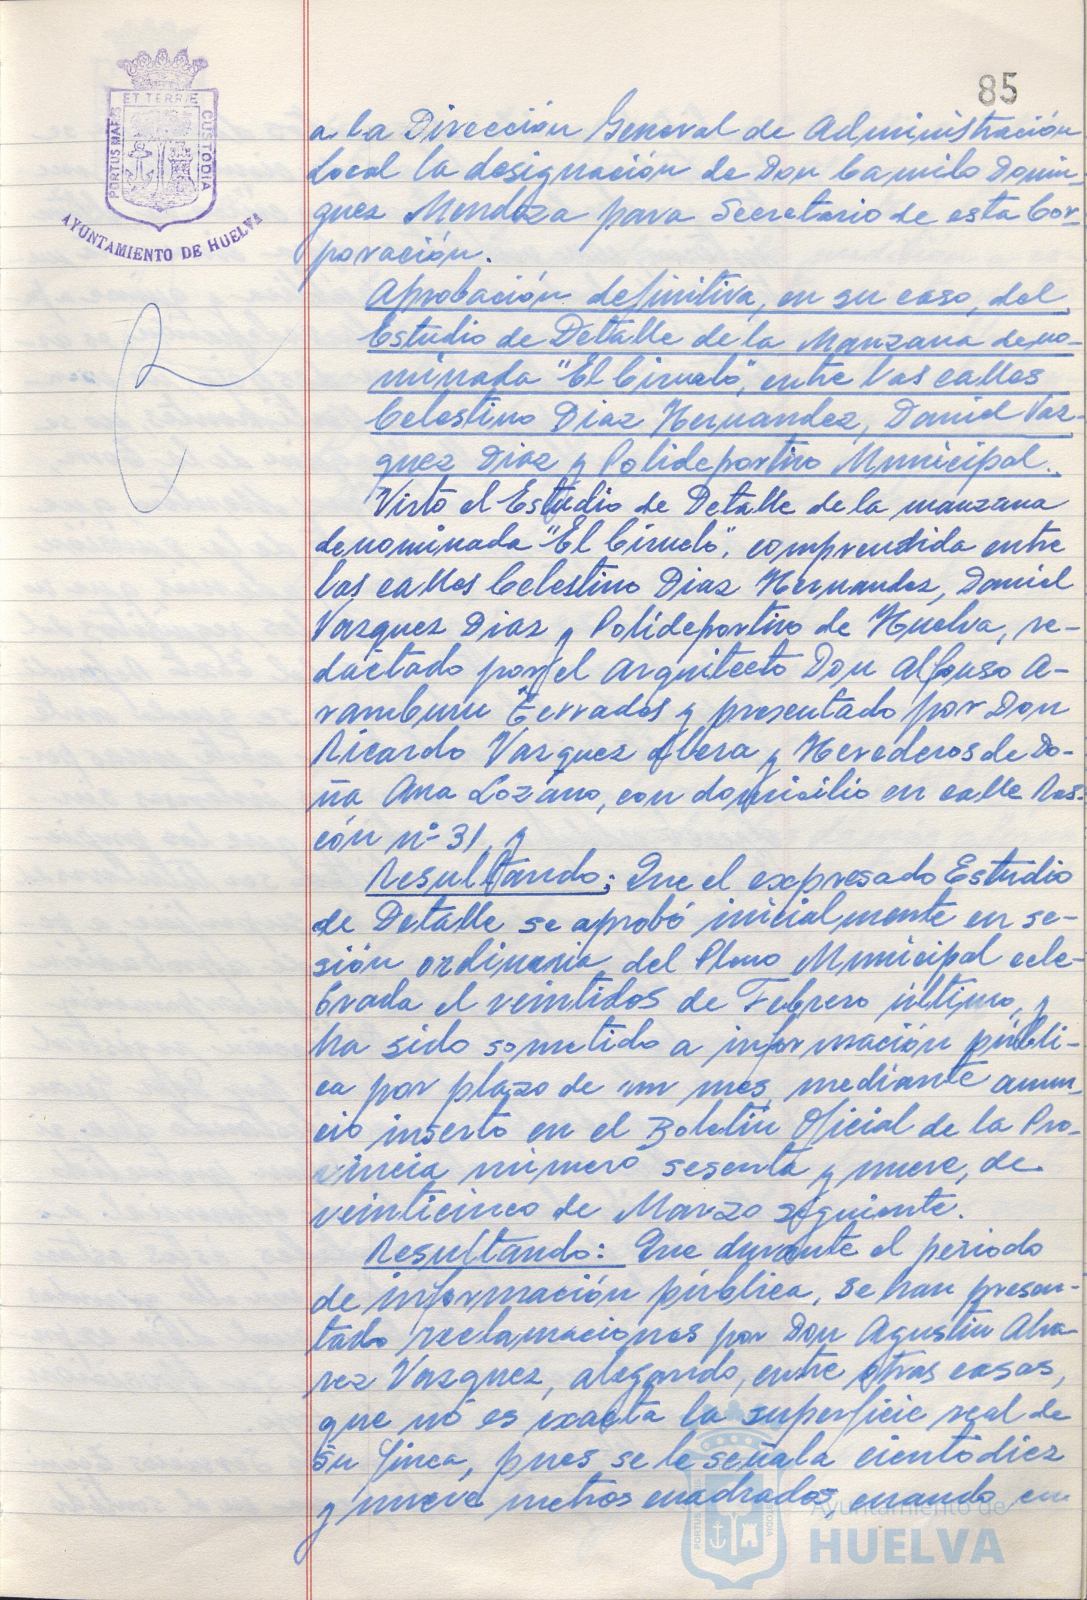 85
PORTUS MARIS ET TERRÆ CUSTODIA
AYUNTAMIENTO DE HUELVA
a la Dirección General de Administración
Local la designación de Don Camilo Domin-
guez Mendoza para Secretario de esta Cor-
poración.
Aprobación definitiva, en su caso, del
Estudio de Detalle de la Manzana deno-
minada "El Ciruelo", entre las calles
Celestino Diaz Hernandez, Daniel Vaz
quez Diaz y Polideportivo Municipal.
Visto el Estudio de Detalle de la manzana
denominada "El Ciruelo", comprendida entre
las calles Celestino Diaz Hernandez, Daniel
Vazquez Diaz y Polideportivo de Huelva, re-
dactado por el arquitecto Don Alfonso A-
ramburu Terrados y presentado por Don
Ricardo Vazquez y Herederos de Do-
ña Ana Lozano, con domicilio en calle Ras-
cón nº 31, y
Resultando: Que el expresado Estudio
de Detalle se aprobó inicialmente en se-
sión ordinaria del Pleno Municipal cele-
brada el veintidos de Febrero último, y
ha sido sometido a información públi-
ca por plazo de un mes, mediante anun-
cio inserto en el Boletín Oficial de la Pro-
vincia número sesenta y nueve, de
veinticinco de Marzo siguiente.
Resultando: Que durante el periodo
de información pública, se han presen-
tado reclamaciones por Don Agustin Alva
rez Vazquez, alegando, entre otras cosas,
que no es exacta la superficie real de
su finca, pues se le señala cientodiez
y nueve metros cuadrados, cuando en
Ayuntamiento de
HUELVA